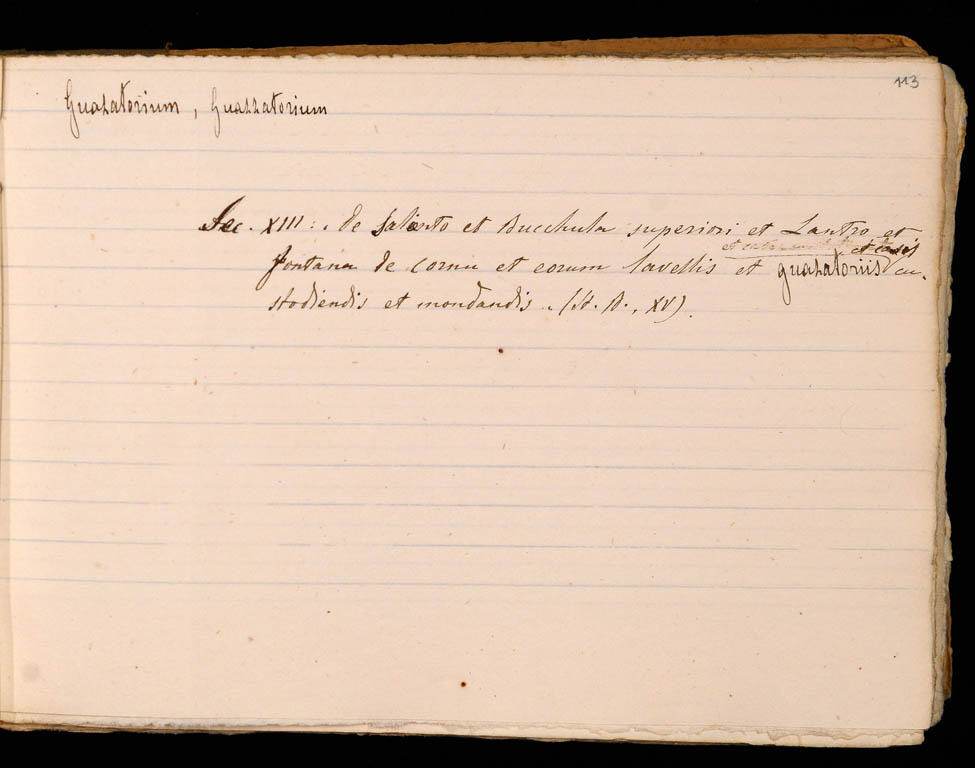 113
Guazatorium, Guazzatorium
Sec. XIII: . de Saliento et Bucchula superiori et Lantro et
et casis
fontana de cornu et eorum lavellis et guazatoriis cu-
stodiendis et mondandis . (St. B., XV).